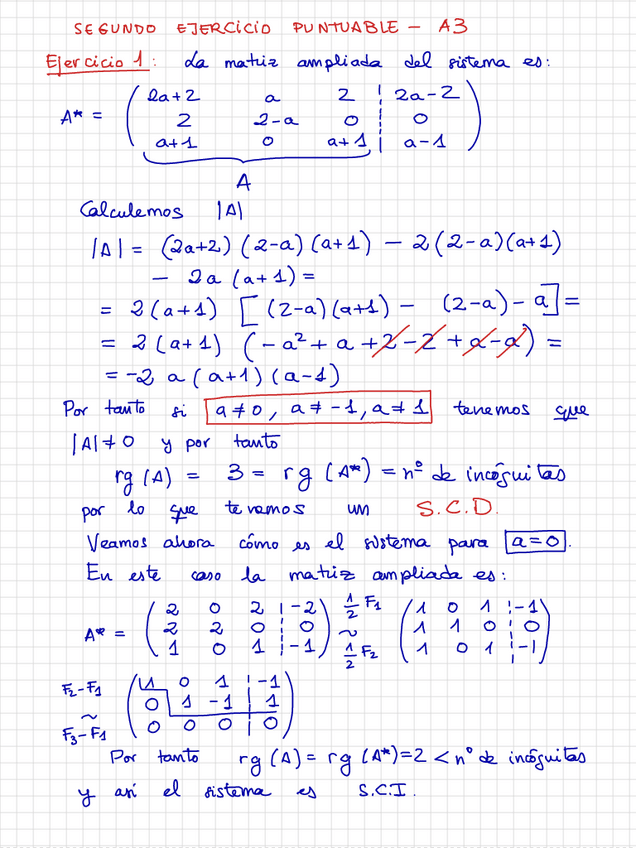 SEGUNDO EJERCICIO PUNTUABLE - A3
Ejercicio 1: La matriz ampliada del sistema es:
A* = ( 2a+2 a 2 | 2a-2
2 2-a 0 | 0
a+1 0 a+1 | a-1 )
A
Calculemos |A|
|A| = (2a+2)(2-a)(a+1) - 2(2-a)(a+1)
- 2a(a+1) =
= 2(a+1) [(2-a)(a+1) - (2-a) - a] =
= 2(a+1) (-a² + a + 2 - 2 + a - a) =
= -2 a(a+1)(a-1)
Por tanto si a≠0, a≠-1, a≠1 tenemos que
|A|≠0 y por tanto
rg(A) = 3 = rg(A*) = nº de incógnitas
por lo que tenemos un S.C.D.
Veamos ahora cómo es el sistema para a=0.
En este caso la matriz ampliada es:
A* = ( 2 0 2 | -2 ) 1/2 F1 ( 1 0 1 | -1 )
( 2 2 0 | 0 ) ~ ( 1 1 0 | 0 )
( 1 0 1 | -1 ) 1/2 F2 ( 1 0 1 | -1 )
F2-F1 ( 1 0 1 | -1 )
~ ( 0 1 -1 | 1 )
F3-F1 ( 0 0 0 | 0 )
Por tanto rg(A) = rg(A*) = 2 < nº de incógnitas
y así el sistema es S.C.I.